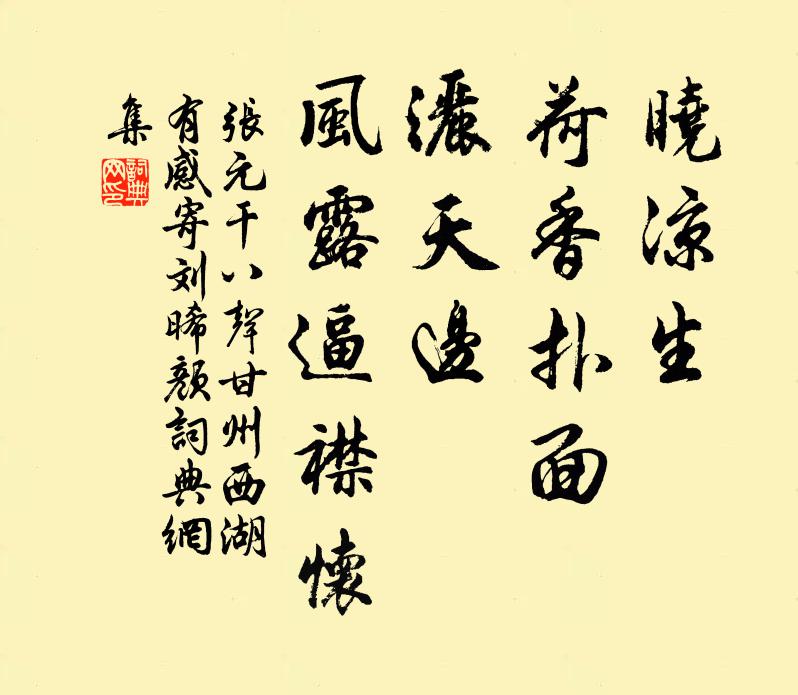 曉涼生
荷香扑面
灑天邊
風露逼襟懷
張元干八聲甘州西湖
有感寄刘晞顏詞典網
集
詞典網印